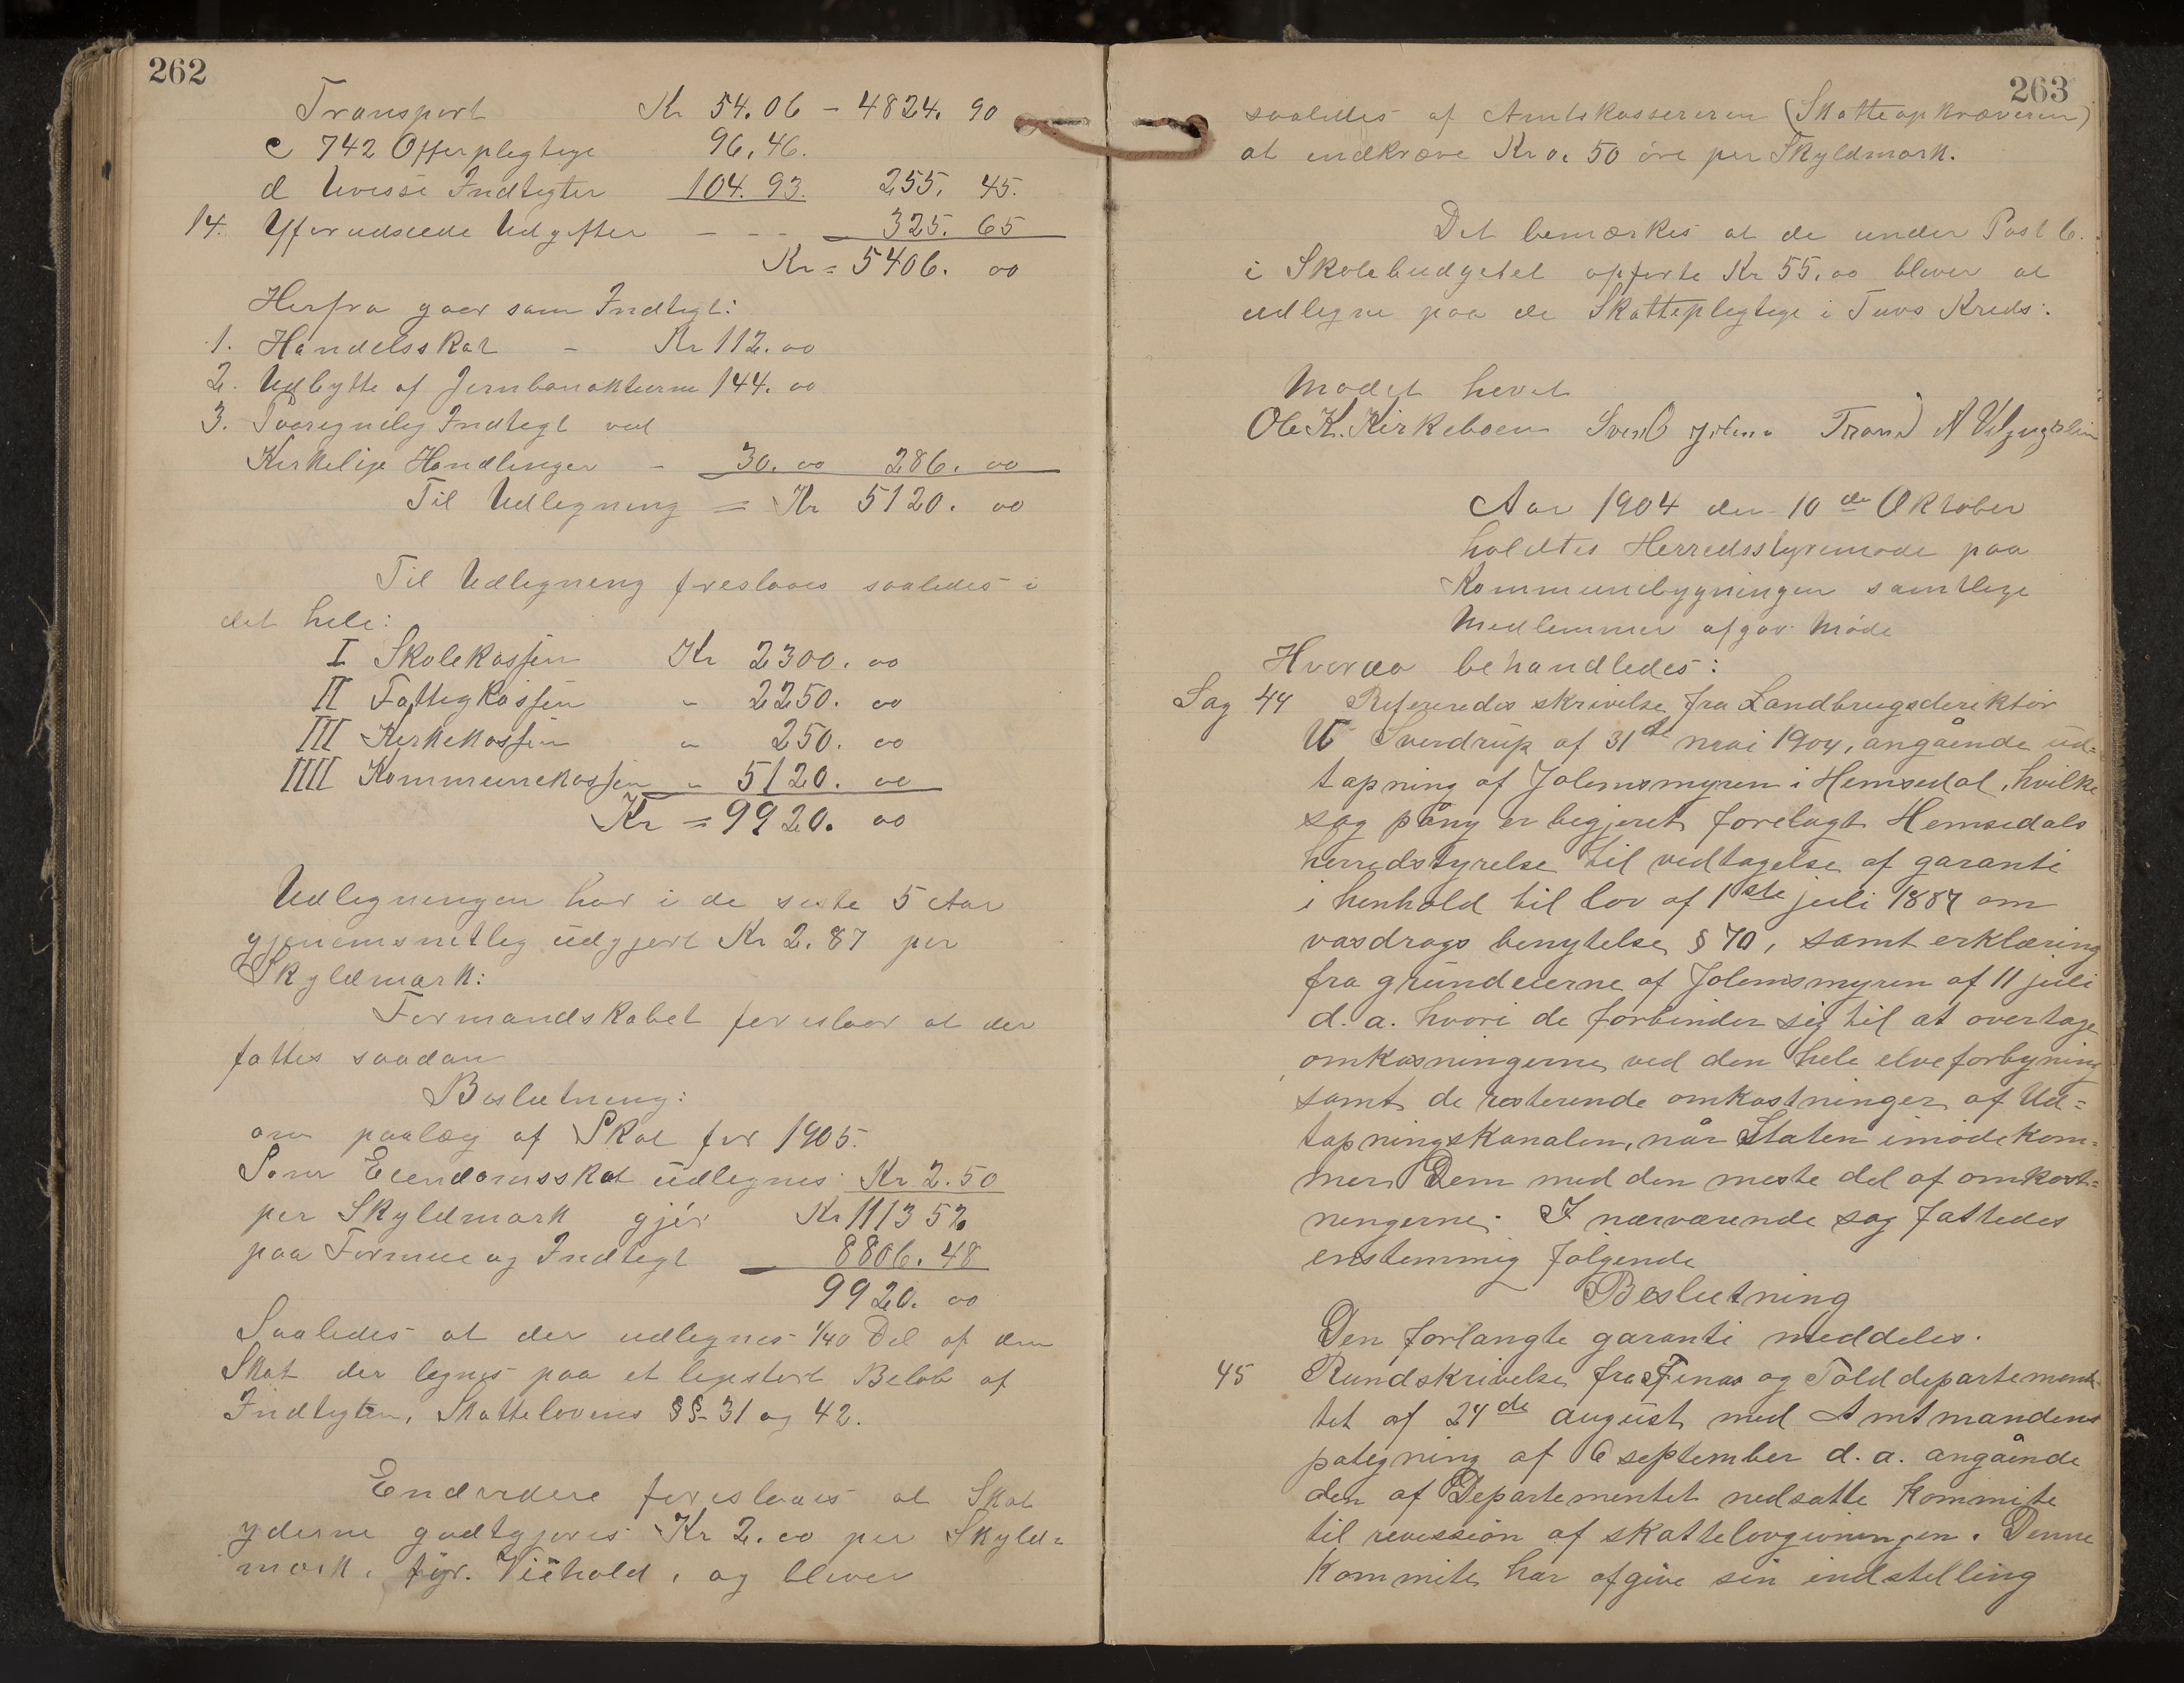 262
Transport Kr 54.06 - 4824. 90
c 742 Offerpligtige 96,46.
d Uvisse Indtegter 104.93. 255. 45.
14. Uforudseede Udgifter - - - 325. 65
Kr = 5406. 00
Herfra gaar som Indtegt:
1. Handelsskat - Kr 112.00
2. Udbytte af Jernbaneaktierne 144.00
3. Paaregnelig Indtegt ved
Kirkelige Handlinger - 30.00 286.00
Til Udlegning = Kr 5120.00
Til Udlegning foreslaaes saaledes i
det hele:
I Skolekassen Kr 2300.00
II Fattigkassen " 2250.00
III Kirkekassen " 250.00
IIII Kommunekassen " 5120.00
Kr = 9920.00
Udlegningen har i de siste 5 Aar
gjenemsnitleg udgjort Kr 2.87 per
Skyldmark:
Formandskabet foreslaar at der
fattes saadan
Beslutning:
om paalæg af Skat for 1905.
Som Eiendomsskat udlegnes Kr 2.50
per Skyldmark gjør Kr 1113 52
paa Formue og Indtegt 8806.48
9920.00
Saaledes at der udlegnes 1/40 Del af den
Skat der legnes paa et ligestort Beløb af
Indtegten, Skattelovens §§ 31 og 42.
Endvidere foreslaaes at Skat
yderne godtgjøres Kr 2.00 per Skyld=
mark, for. Veihold, og bliver
263
saaledes af Amtskassereren (Skatteopkræveren)
at indkræve Kr 0. 50 øre per Skyldmark.
Det bemærkes at de under Post 6.
i Skolebudgetet opførte Kr 55.00 bliver at
udlegne paa de Skattepligtige i Tuvs Kreds.
Mødet hevet
Ole K. Kirkeboen Svend Trond A
Aar 1904 den 10de Oktober
holdtes Herredsstyremøde paa
Kommunebygningen samtlige
Medlemmer afgav Møde
Hvorda behandledes:
Sag 44 Refereredes skrivelse fra Landbrugsderektør
Sverdrup af 31te mai 1904, angående ud=
tapning af Jolemsmyren i Hemsedal, hvilke
sag påny er begjeret forelagt Hemsedals
herredstyrelse til vedtagelse af garanti
i henhold til lov af 1ste juli 1887 om
vasdrags benytelse § 70, samt erklæring
fra grundeierne af Jolemsmyren af 11 juli
d. a. hvori de forbinder sig til at overtage
omkosningerne ved den hele elveforbyning
samt de resterende omkostninger af Ud=
tapningskanalen, når Staten imødekom=
mer Dem med den meste del af omkost=
ningerne. I nærværende sag fattedes
enstemmig følgende
Beslutning
Den forlangte garanti meddeles.
45 Rundskrivelse fra Finas og Tolddepartement
tet af 24de august med Amtmandens
pategning af 6 september d. a. angående
den af Departementet nedsatte Kommite
til revession af skattelovgivningen. Denne
Kommite har afgive sin indstelling